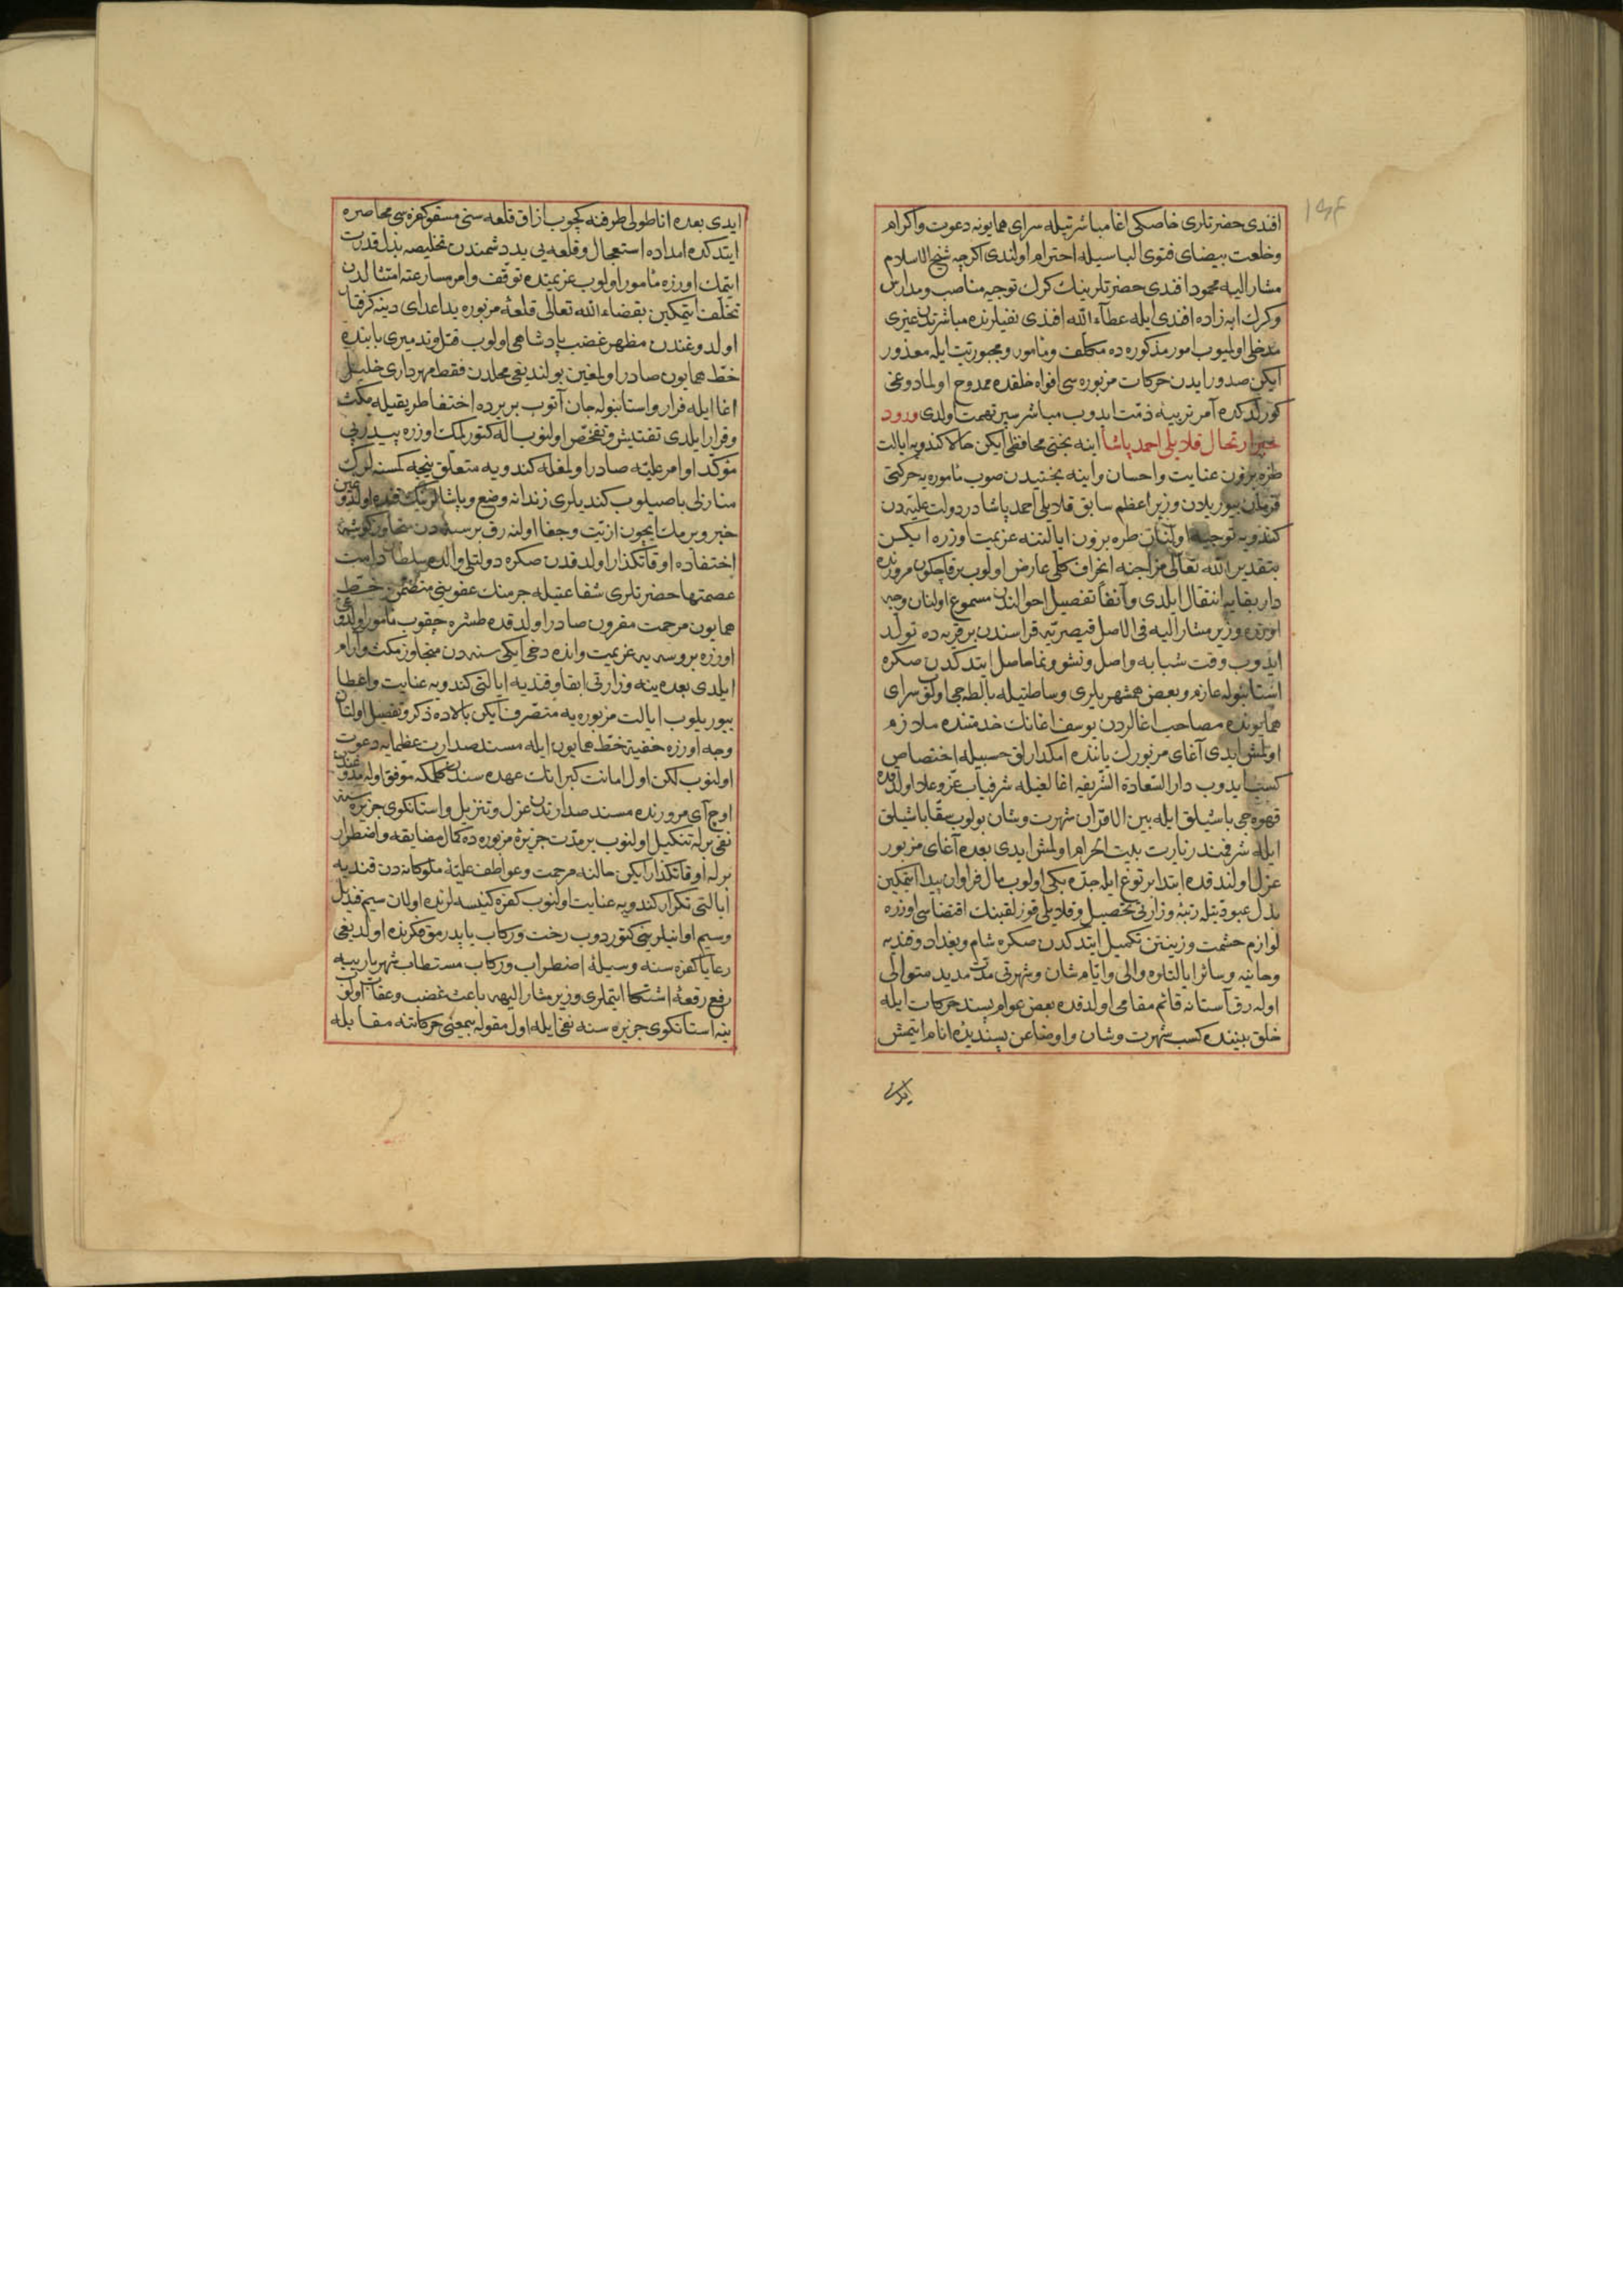 افندی حضرتلری خاصکی اغا مباشرتیله سرای همایونه دعوت واکرام
وخلعت بیضای فتوی الباسیله احترام اولندی اکرچه شیخ الاسلام
مشار الیه محمود افندی حضرتلرینك کرك توجیه مناصب ومدارس
وکرك ابه زاده افندی ایله عطاء الله افندی نفیلرنده مباشرتدن غیری
مدخلی اولمیوب امور مذکوره ده مکلف ومامور ومجبوریت ایله معذور
ایکن صدور ایدن حرکات مزبوره سی افواه خلقده ممدوح اولمادوغی
کورلدکده آمر ترتیبه ذمت ایدوب مباشر سپر تهمت اولدی ورود
خبر ارتحال قلایلی احمد پاشا اینه بختی محافظی ایکن حالا کندویه ایالت
طره بزون عنایت واحسان واینه بختیدن صوب ماموره یه حرکتی
فرمان بیوریلان وزیر اعظم سابق قلایلی احمد پاشا در دولت علیه دن
کندویه توجیه اولنان طره بزون ایالتنه عزیمت اوزره ایکن
بتقدیر الله تعالی مزاجنه انحراف کلی عارض اولوب برقاچ کون مرورنده
دار بقایه انتقال ایلدی وآنفا تفصیل احوالندن مسموع اولنان وجه
اوزره وزیر مشار الیه فی الاصل قیصریه قراسندن بر قریه ده تولد
ایدوب وقت شبابه واصل ونشو ونما حاصل ایتدکدن صکره
استانبوله عازم وبعض همشهریلری وساطتیله بالطه جی اولوب سرای
همایونده مصاحب اغالردن یوسف اغانك خدمتنده ملازم
اولمش ایدی آغای مزبورك یاننده امکدارلق حسبیله اختصاص
کسب ایدوب دار السعادة الشریفه اغالغیله شرفیاب عز وعلا اولدقده
قهوه جی باشیلق ایله بین الاقران شهرت وشان بولوب سقا باشیلق
ایله شرفمند زیارت بیت الحرام اولمش ایدی بعده آغای مزبور
عزل اولندقده ابتدا بر توغ ایله جده بکی اولوب مال فراوان پیدا ایتمکین
بذل عبودیتله رتبه وزارتی تحصیل وقلایلی قوز لقبنك اقتضاسی اوزره
لوازم حشمت وزینتن تکمیل ایتدکدن صکره شام وبغداد وقندیه
وخانیه وسائر ایالتلره والی وایام شان وشهرتی مدت مدید متوالی
اوله رق آستانه قائم مقامی اولدقده بعض عوام پسند حرکات ایله
خلق بیننده کسب شهرت وشان واوضاعن پسندیده انام ایتمش
ایدی بعده اناطولی طرفنه کچوب ازاق قلعه سنی مسقو کفره سی محاصره
ایتدکده امداده استعجال وقلعه یی ید دشمندن تخلیصه بذل قدرت
ایتمك اوزره مامور اولوب عزیمتده توقف وامر مسارعته امتثالدن
تخلف ایتمکین بقضاء الله تعالی قلعه مزبوره ید اعدای دینه کرفتار
اولدوغندن مظهر غضب پادشاهی اولوب قتل اوتدمیری بابنده
خط همایون صادر اولمغین بولندیغی محلدن فقط مهرداری خلیل
اغا ایله فرار واستانبوله جان آتوب بر یرده اختفا طریقیله مکث
وقرار ایلدی تفتیش وتفحص اولنوب اله کتورلمك اوزره پیدرپی
مؤکد اوامر علیه صادر اولمغله کندویه متعلق نیجه کمسنه لرك
منازلی باصیلوب کندیلری زندانه وضع وپاشالرینك قنده اولدوغین
خبر ویرمك ایچون اذیت وجفا اولنه رق بر سنه دن متجاوز کوشه
اختفاده اوقاتکذار اولدقدن صکره دولتلی والده سلطان دامت
عصمتها حضرتلری شفاعتیله جرمنك عفوینی متضمن خط
همایون مرحمت مقرون صادر اولدقده طشره چقوب مامور اولدوغی
اوزره بروسه یه عزیمت وانده دخی ایکی سنه دن متجاوز مکث وآرام
ایلدی بعده ینه وزارتی ابقا وقندیه ایالتی کندویه عنایت واعطا
بیوریلوب ایالت مزبوره یه متصرف ایکن بالاده ذکر وتفصیل اولنان
وجه اوزره خفیة خط همایون ایله مسند صدارت عظمایه دعوت
اولنوب لکن اول امانت کبرانك عهده سندن کلمکه موفق اوله مدوغندن
اوچ آی مرورنده مسند صدارتدن عزل وتنزیل واستانکوی جزیره سنه
نفی برله تنکیل اولنوب بر مدت جزیره مزبوره ده کمال مضایقه واضطرار
برله اوقاتکذار ایکن حالنه مرحمت وعواطف علیه ملوکانه دن قندیه
ایالتی تکرار کندویه عنایت اولنوب کفره کنیسه لرنده اولان سیم قندیل
وسیم اوانیلرینی کتوردوب رخت ورکاب یاپدرمق فکرنده اولدیغی
رعایا کفره سنه وسیله اضطراب ورکاب مستطاب شهریارییه
رفع رقعه اشتکا ایتملری وزیر مشار الیهه باعث غضب وعقاب اولوب
ینه استانکوی جزیره سنه نفی ایله اول مقوله بیمعنی حرکاتنه مقابله